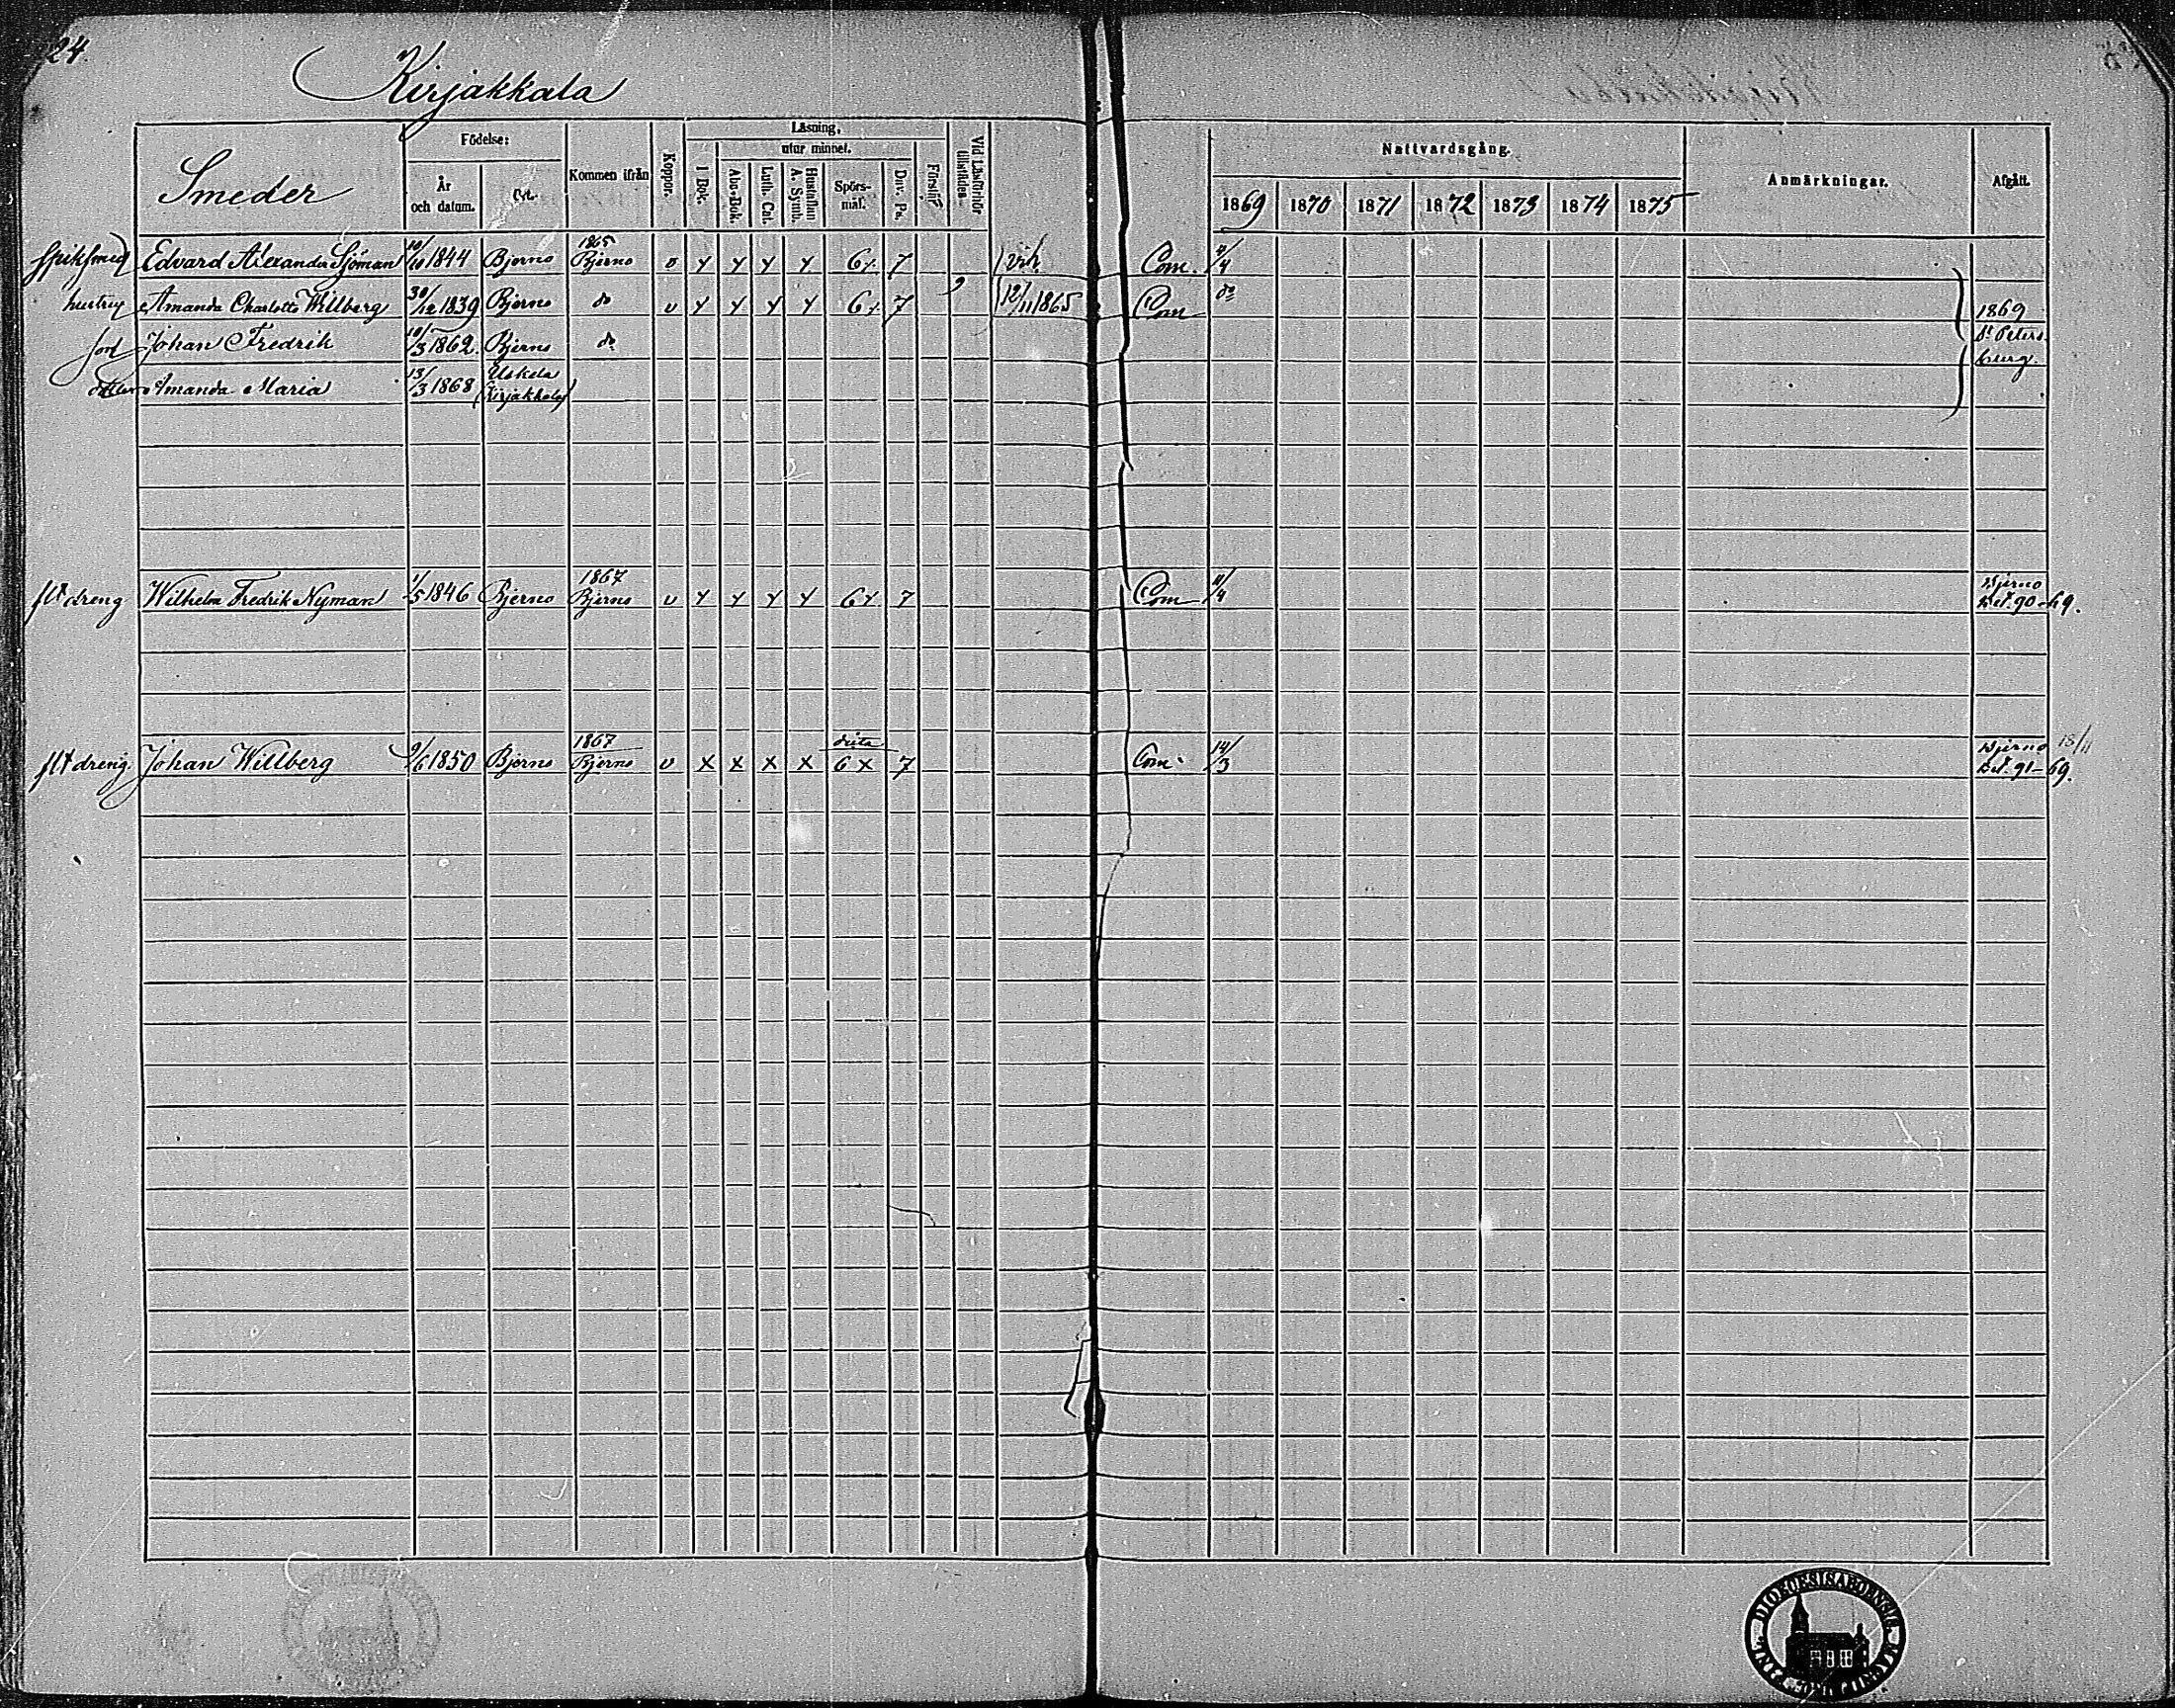 24.
Kirjakkala
Smeder
Födelse:
År och datum.
Ort.
Kommen ifrån
Koppor.
Läsning,
utur minnet.
I Bok.
Abc-Bok.
Luth. Cat.
Hustaflan A. Symb.
Spörsmål.
Dav. Ps.
Förstår
Vid Läsförhör tillstädes
Nattvardsgång.
1869 1870 1871 1872 1873 1874 1875
Anmärkningar.
Afgått.
Spiksmed Edvard Alexander Sjöman 10/10 1844 Bjerno 1865 Bjerno v y y y y 6 y. 7 vih. Com. 11/4
hustru Amanda Charlotta Willberg 30/12 1839 Bjerno do v y y y y 6 y. 7 12/11 1865 Com do 1869
son Johan Fredrik 10/3 1862. Bjerno do St Peters-
burg.
dotter Amanda Maria 13/3 1868 Uskela (Kirjakkala)
Wilhelm Fredrik Nyman 1/5 1846 Bjerno 1867 Bjerno v y y y y 6 y 7 Com 11/4 Bjerno
Bet. 90-69.
Johan Willberg 9/6 1850 Bjerno 1867 Bjerno v x x x x 6 x 7 Com. 14/3 Bjerno 15/11
Bet. 91-69.